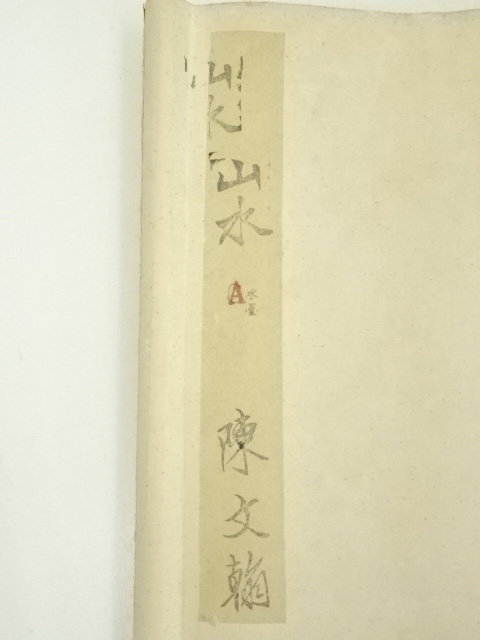 山水
山水
A
水墨
陳文翰